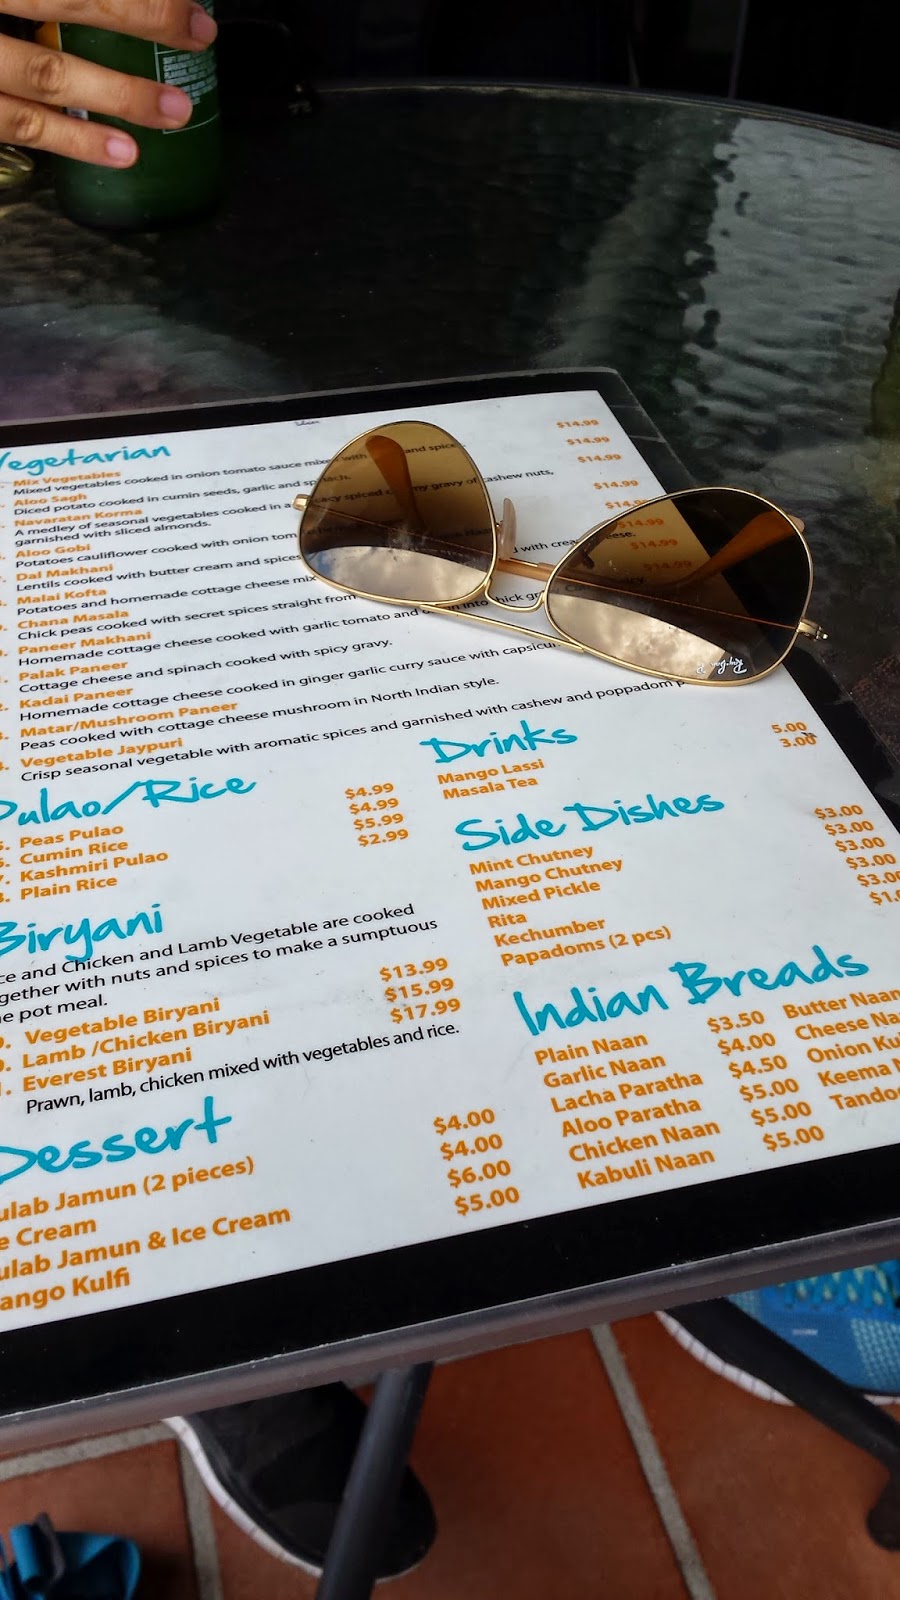 Vegetarian
Mix Vegetables $14.99
Mixed vegetables cooked in onion tomato sauce mixed with and spices.
Aloo Sagh $14.99
Diced potato cooked in cumin seeds, garlic and spinach.
Navaratan Korma $14.99
A medley of seasonal vegetables cooked in a spiced gravy of cashew nuts,
garnished with sliced almonds.
Aloo Gobi $14.99
Potatoes cauliflower cooked with onion
Dal Makhani
Lentils cooked with butter cream and spices
Malai Kofta $14.99
Potatoes and homemade cottage cheese with
Chana Masala $14.99
Chick peas cooked with secret spices straight from
Paneer Makhani $14.99
Homemade cottage cheese cooked with garlic tomato and
Palak Paneer
Cottage cheese and spinach cooked with spicy gravy.
Kadai Paneer
Homemade cottage cheese cooked in ginger garlic curry sauce with
Matar/Mushroom Paneer
Peas cooked with cottage cheese mushroom in North Indian style.
Vegetable Jaypuri
Crisp seasonal vegetable with aromatic spices and garnished with cashew and poppadom
Pulao/Rice
Peas Pulao $4.99
Cumin Rice $4.99
Kashmiri Pulao $5.99
Plain Rice $2.99
Biryani
and Chicken and Lamb Vegetable are cooked
together with nuts and spices to make a sumptuous
pot meal.
Vegetable Biryani $13.99
Lamb /Chicken Biryani $15.99
Everest Biryani $17.99
Prawn, lamb, chicken mixed with vegetables and rice.
Dessert
ulab Jamun (2 pieces) $4.00
e Cream $4.00
ulab Jamun & Ice Cream $6.00
ango Kulfi $5.00
Drinks
Mango Lassi 5.00
Masala Tea 3.00
Side Dishes
Mint Chutney $3.00
Mango Chutney $3.00
Mixed Pickle $3.00
Rita $3.00
Kechumber $3.00
Papadoms (2 pcs) $1.0
Indian Breads
Plain Naan $3.50
Garlic Naan $4.00
Lacha Paratha $4.50
Aloo Paratha $5.00
Chicken Naan $5.00
Kabuli Naan $5.00
Butter Naan
Cheese Na
Onion Ku
Keema
Tando
Ray-Ban